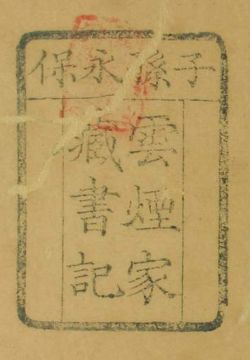 子孫永保
雲煙家
藏書記